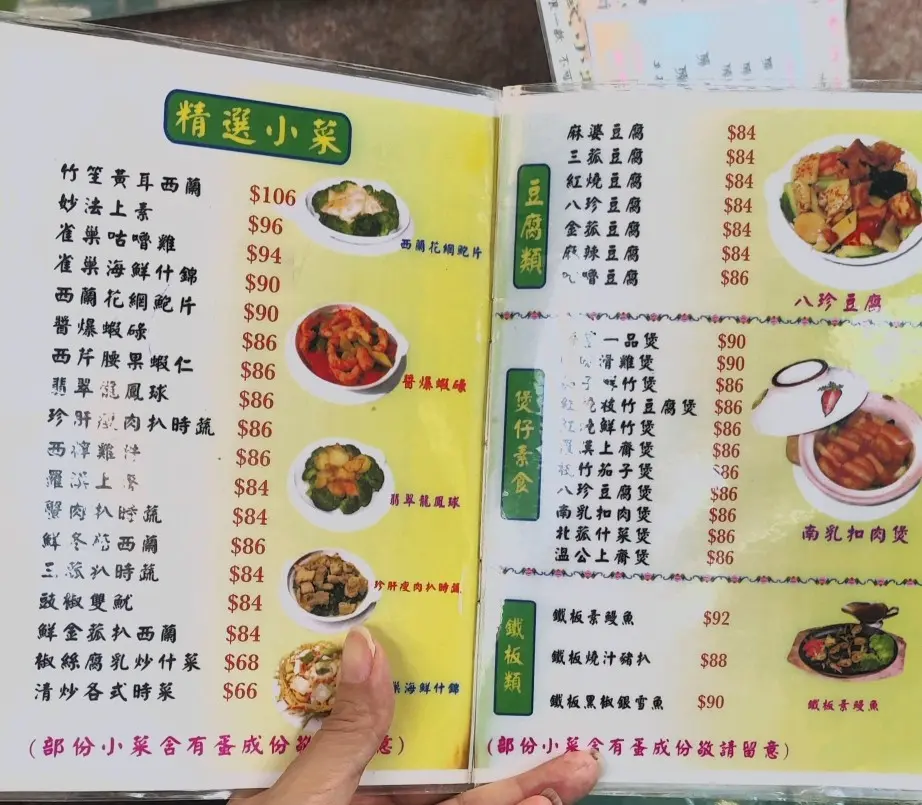 精選小菜
竹笙黃耳西蘭 $106
妙法上素 $96
雀巢咕嚕雞 $94
雀巢海鮮什錦 $90
西蘭花網鮑片 $90
醬爆蝦碌 $86
西芹腰果蝦仁 $86
翡翠龍鳳球 $86
珍肝瘦肉扒時蔬 $86
西檸雞 $86
羅漢上齋 $84
蟹肉扒時蔬 $84
鮮冬菇西蘭 $86
三菰扒時蔬 $84
豉椒雙魷 $84
鮮金菰扒西蘭 $84
椒絲腐乳炒什菜 $68
清炒各式時菜 $66
西蘭花網鮑片
醬爆蝦碌
翡翠龍鳳球
珍肝瘦肉扒時蔬
海鮮什錦
(部份小菜含有蛋成份敬 意)
豆腐類
麻婆豆腐 $84
三菰豆腐 $84
紅燒豆腐 $84
八珍豆腐 $84
金菰豆腐 $84
麻辣豆腐 $84
嚕豆腐 $86
八珍豆腐
煲仔素食
一品煲 $90
滑雞煲 $90
子鮮竹煲 $86
紅燒枝竹豆腐煲 $86
紅燒鮮竹煲 $86
羅漢上齋煲 $86
枝竹茄子煲 $86
八珍豆腐煲 $86
南乳扣肉煲 $86
北菰什菜煲 $86
溫公上齋煲 $86
南乳扣肉煲
鐵板類
鐵板素鰻魚 $92
鐵板燒汁豬扒 $88
鐵板黑椒銀雪魚 $90
鐵板素鰻魚
(部份小菜含有蛋成份敬請留意)